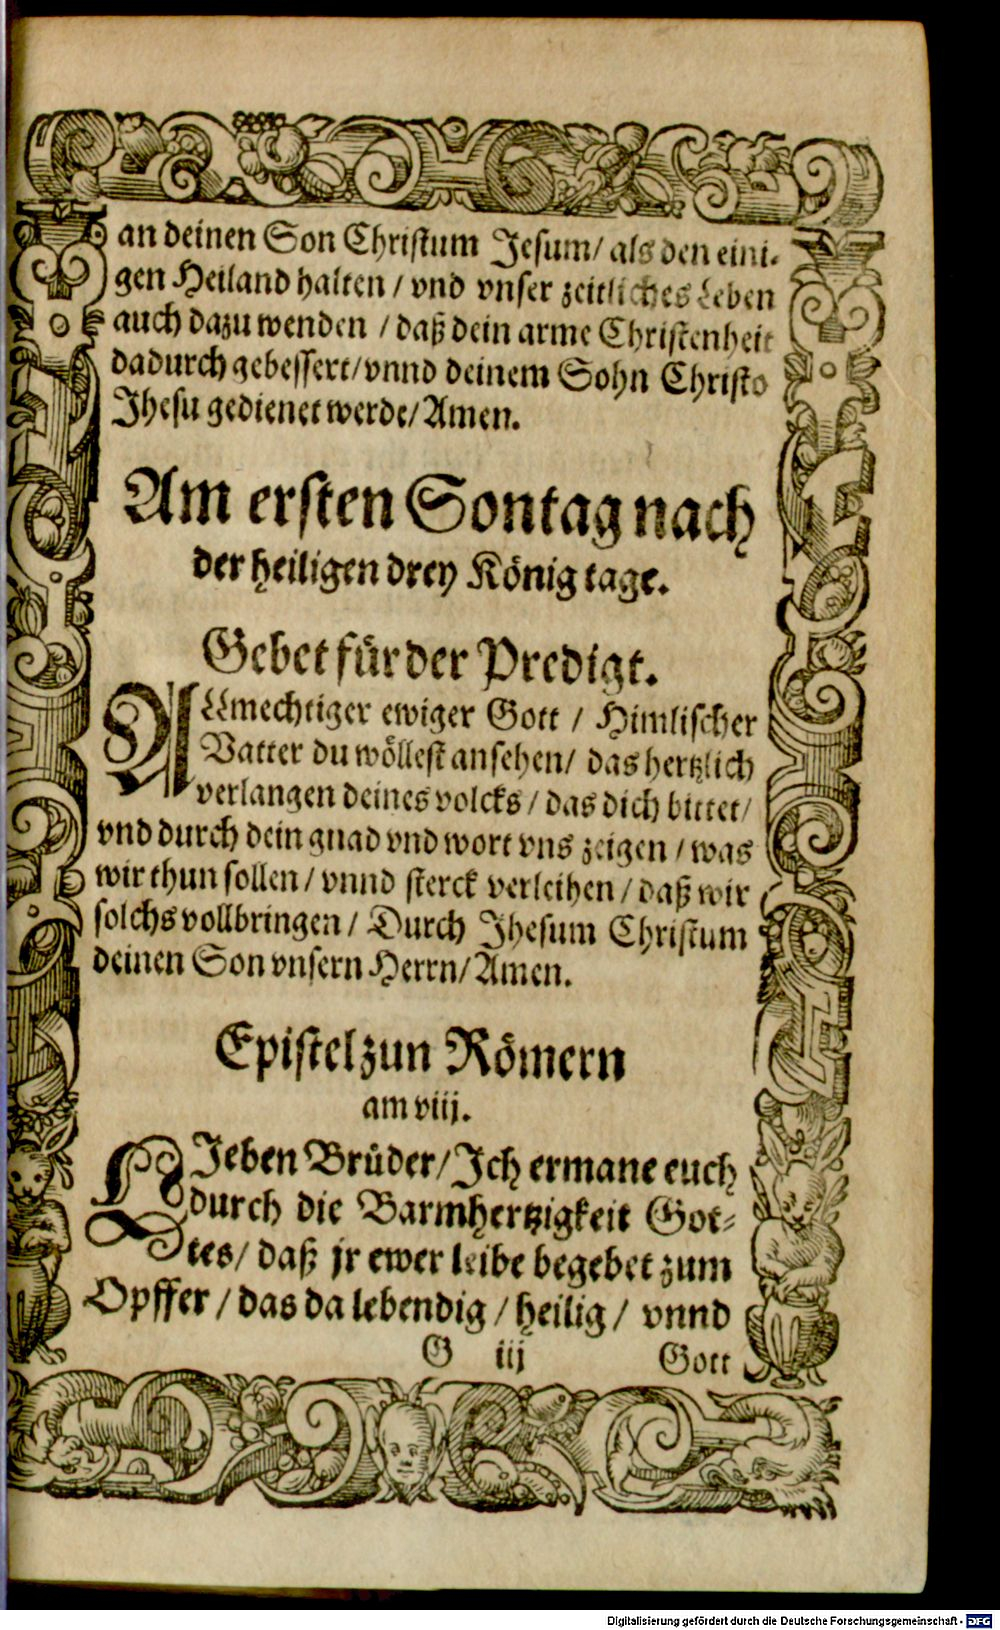 an deinen Son Christum Jesum/ als den eini-
gen Heiland halten / vnd vnser zeitliches Leben
auch dazu wenden / daß dein arme Christenheit
dadurch gebessert/ vnnd deinem Sohn Christo
Jhesu gedienet werde/ Amen.
Am ersten Sontag nach
der heiligen drey König tage.
Gebet für der Predigt.
ALLmechtiger ewiger Gott / Himlischer
Vatter du wöllest ansehen/ das hertzlich
verlangen deines volcks / das dich bittet/
vnd durch dein gnad vnd wort vns zeigen / was
wir thun sollen / vnnd sterck verleihen / daß wir
solchs vollbringen / Durch Jhesum Christum
deinen Son vnsern Herrn/ Amen.
Epistel zun Römern
am viij.
LJeben Brüder/ Jch ermane euch
durch die Barmhertzigkeit Got-
tes/ daß jr ewer leibe begebet zum
Opffer / das da lebendig / heilig / vnnd
G iij Gott
Digitalisierung gefördert durch die Deutsche Forschungsgemeinschaft - DFG